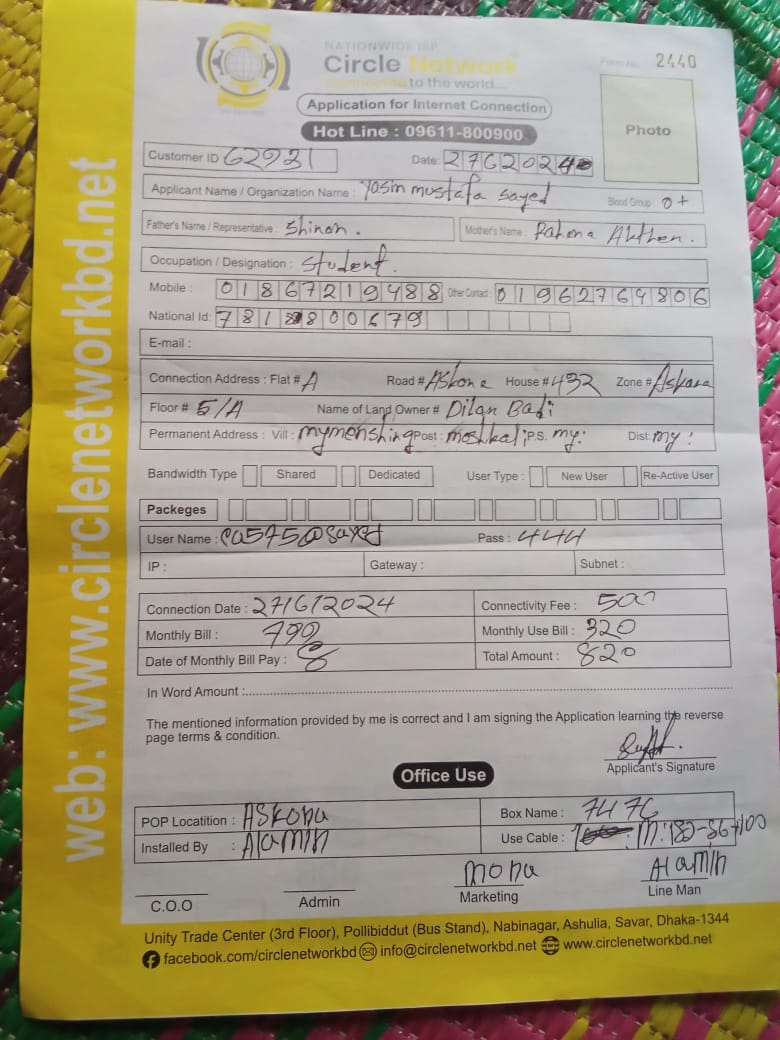 NATIONWIDE ISP
Circle Network
Connecting to the world....
Form No. 2440
Application for Internet Connection
Hot Line : 09611-800900
Photo
Customer ID 62931 Date: 2762024
Applicant Name / Organization Name : Yosin mustafa sayed Blood Group : O+
Father's Name / Representative : Shinon. Mother's Name :
Occupation / Designation : Student.
Mobile : 01867219488 Other Contact 01962769806
National Id: 781 800679
E-mail :
Connection Address : Flat # A Road # ASkona House # 432 Zone # Askona
Floor # 5/A Name of Land Owner # Dilan Badi
Permanent Address : Vill : mymenshing Post : moshkali P.S. my: Dist: my:
Bandwidth Type Shared Dedicated User Type : New User Re-Active User
Packeges
User Name : ca575@sayed Pass : 444
IP : Gateway : Subnet :
Connection Date : 27/6/2024 Connectivity Fee : 500
Monthly Bill : Monthly Use Bill : 320
Date of Monthly Bill Pay : 8 Total Amount : 820
In Word Amount :
The mentioned information provided by me is correct and I am signing the Application learning the reverse
page terms & condition.
Applicant's Signature
Office Use
POP Locatition : ASkona Box Name : 7476
Installed By : Alamin Use Cable : M:182-86=100
C.O.O Admin mona Marketing Alamin Line Man
Unity Trade Center (3rd Floor), Pollibiddut (Bus Stand), Nabinagar, Ashulia, Savar, Dhaka-1344
facebook.com/circlenetworkbd info@circlenetworkbd.net www.circlenetworkbd.net
web: www.circlenetworkbd.net